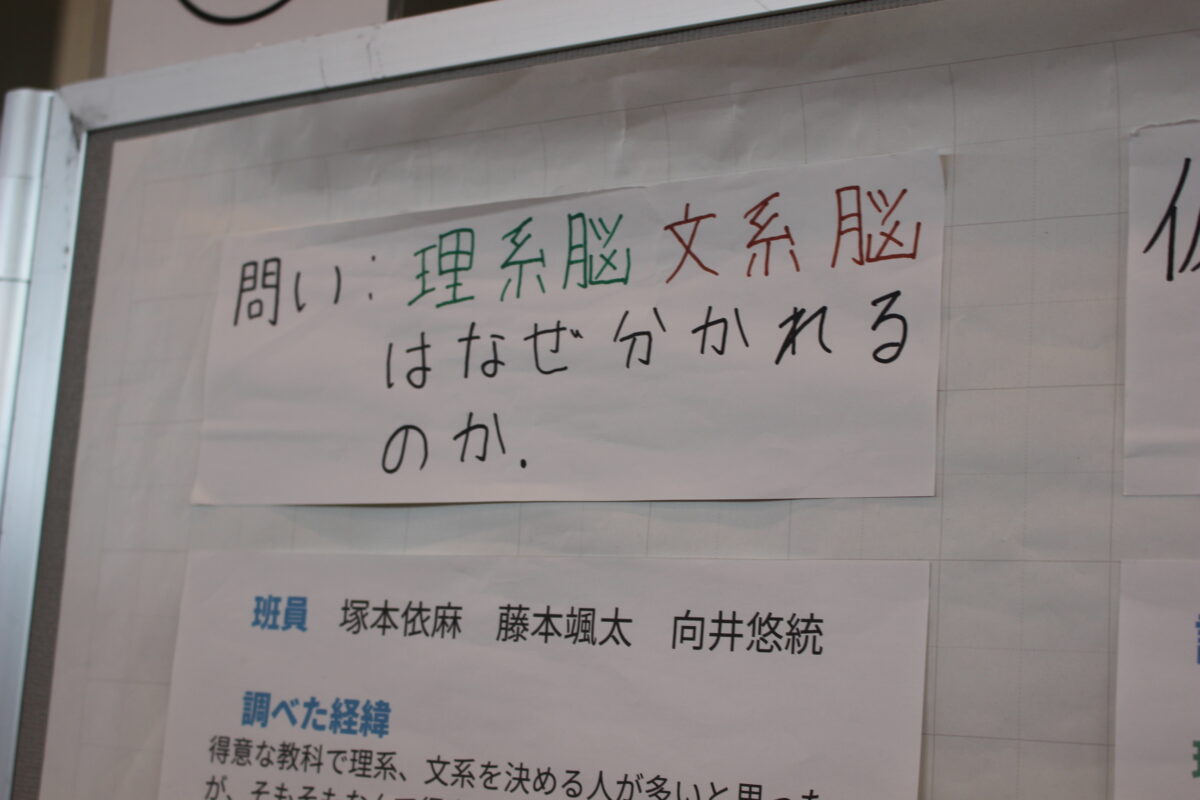 問い：理系脳 文系脳
はなぜ分かれる
のか.
班員　塚本依麻　藤本颯太　向井悠統
調べた経緯
得意な教科で理系、文系を決める人が多いと思った
が、そもそもなんで得